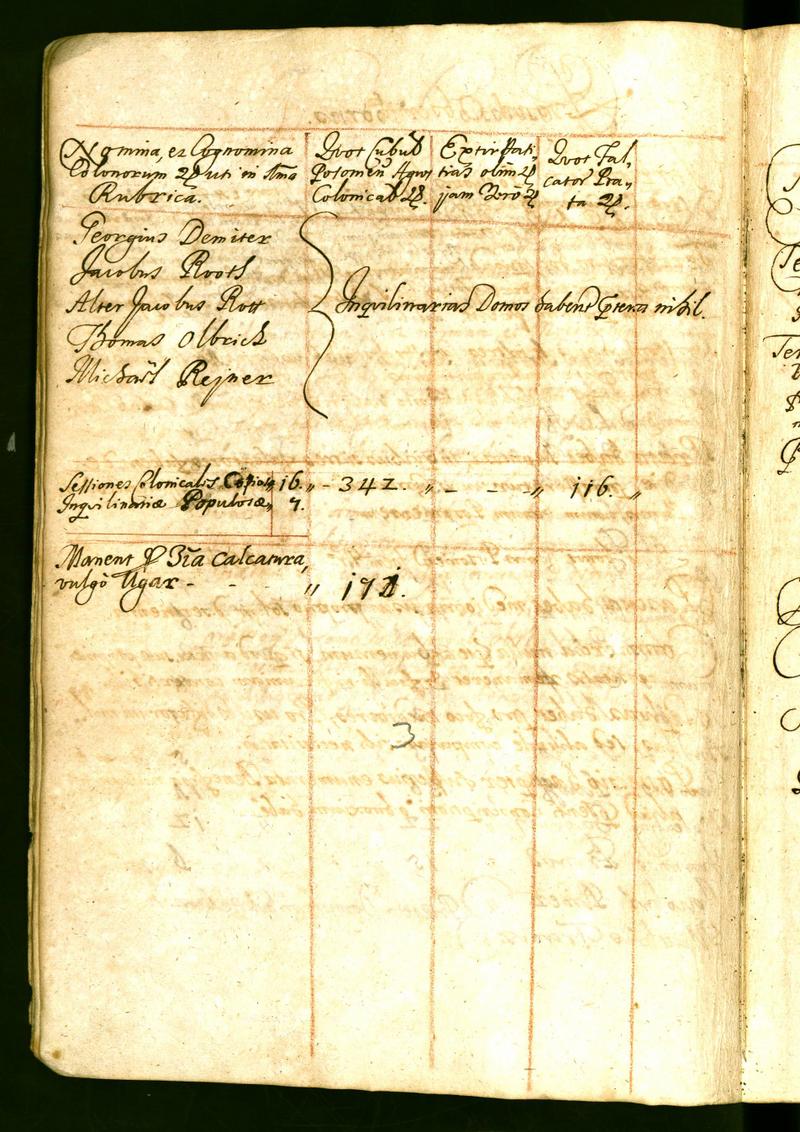 Nomina, et Cognomina
Colonorum uti in 1ma
Rubrica.
Quot Cubul
Posomen Agros
Colonical
Extirpati
tias olim
jam vero
Quot Fal,
cator Pra,,
ta
Georgius Demiter
Jacobus Rooth
Alter Jacobus Rott
Thomas Olbrick
Michaël Rejner
Inquilinarias Domos habent Cæteras nihil.
Sessiones Colonicales Copiosæ,, 16. ,, - 342. ,, - - - ,, 116. ,,
Inquilinariæ Populosæ,, 7.
Manent 3tia Calcatura,
vulgò Ugar - - - ,, 171.
3